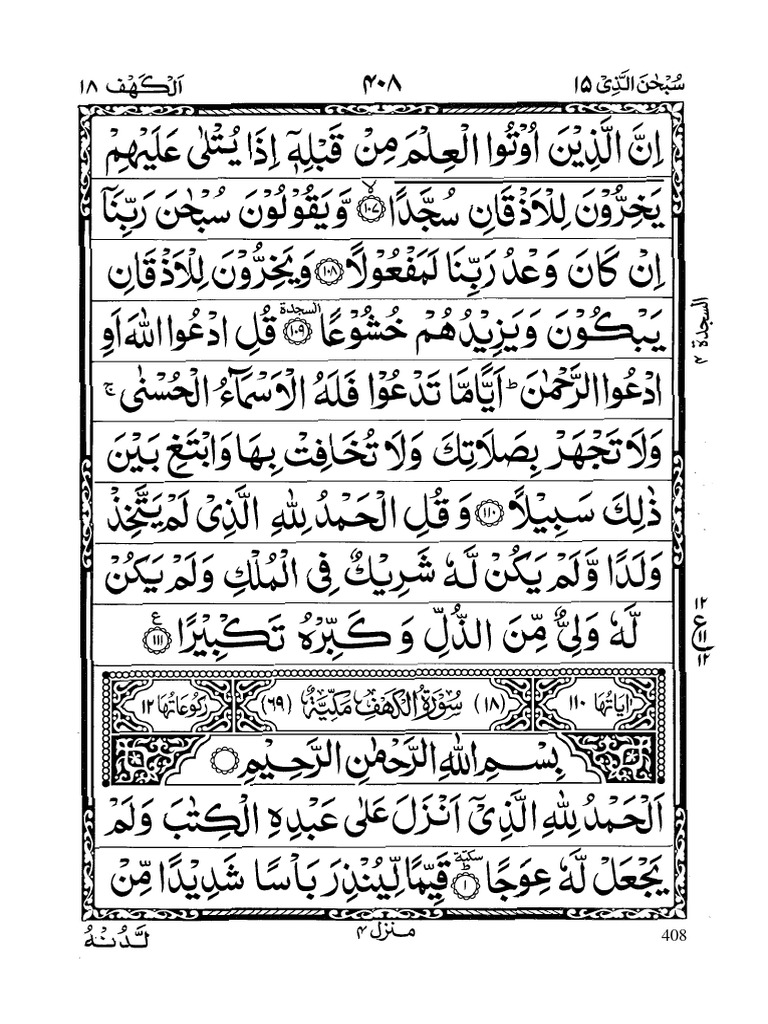 سُبْحٰنَ الَّذِیْ ۱۵ ۴۰۸ اَلْكَهْف ۱۸
اِنَّ الَّذِیْنَ اُوْتُوا الْعِلْمَ مِنْ قَبْلِهٖۤ اِذَا یُتْلٰى عَلَیْهِمْ
یَخِرُّوْنَ لِلْاَذْقَانِ سُجَّدًا ۙ‏﴿۱۰۷﴾ وَّیَقُوْلُوْنَ سُبْحٰنَ رَبِّنَاۤ
اِنْ كَانَ وَعْدُ رَبِّنَا لَمَفْعُوْلًا ﴿۱۰۸﴾ وَیَخِرُّوْنَ لِلْاَذْقَانِ
یَبْكُوْنَ وَیَزِیْدُهُمْ خُشُوْعًا السجدة ﴿۱۰۹﴾ قُلِ ادْعُوا اللّٰهَ اَوِ
السجدة ۴
ادْعُوا الرَّحْمٰنَ ؕ اَیًّا مَّا تَدْعُوْا فَلَهُ الْاَسْمَآءُ الْحُسْنٰى ۚ
وَلَا تَجْهَرْ بِصَلَاتِكَ وَلَا تُخَافِتْ بِهَا وَابْتَغِ بَیْنَ
ذٰلِكَ سَبِیْلًا ﴿۱۱۰﴾ وَقُلِ الْحَمْدُ لِلّٰهِ الَّذِیْ لَمْ یَتَّخِذْ
وَلَدًا وَّلَمْ یَكُنْ لَّهٗ شَرِیْكٌ فِی الْمُلْكِ وَلَمْ یَكُنْ
لَّهٗ وَلِیٌّ مِّنَ الذُّلِّ وَكَبِّرْهُ تَكْبِیْرًا ع ﴿۱۱۱﴾
۱۲ ع ۱۱ ۱۲
اٰیَاتُهَا ۱۱۰ (۱۸) سُوْرَةُ الْكَهْفِ مَكِّیَّةٌ (۶۹) رُكُوْعَاتُهَا ۱۲
بِسْمِ اللّٰهِ الرَّحْمٰنِ الرَّحِیْمِ
اَلْحَمْدُ لِلّٰهِ الَّذِیْۤ اَنْزَلَ عَلٰى عَبْدِهِ الْكِتٰبَ وَلَمْ
یَجْعَلْ لَّهٗ عِوَجًا سكتة ؕ ﴿۱﴾ قَیِّمًا لِّیُنْذِرَ بَاْسًا شَدِیْدًا مِّنْ
منزل ۴
لَّدُنْهُ
408